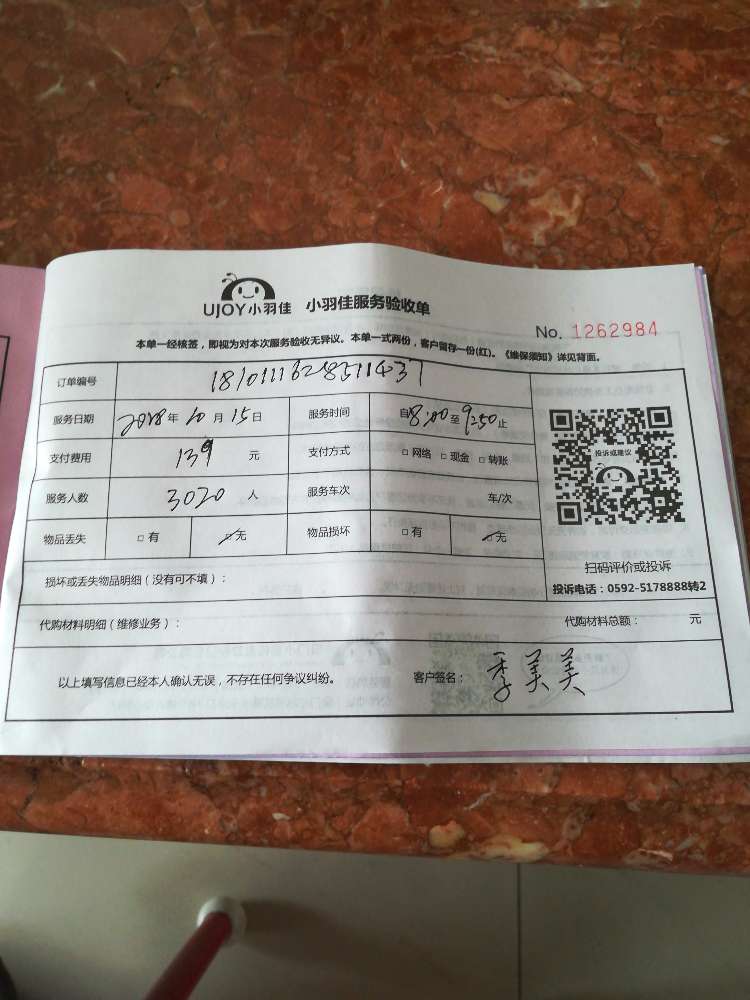 UJOY小羽佳 小羽佳服务验收单
No. 1262984
本单一经核签，即视为对本次服务验收无异议。本单一式两份，客户留存一份(红)。《维保须知》详见背面。
订单编号
服务日期 2018年 10月 15日 服务时间 自8:00至9:50止
支付费用 139 元 支付方式 □网络 □现金 □转账
服务人数 3020 人 服务车次 车/次
物品丢失 □有 □无 物品损坏 □有 □无
投诉或建议
扫码评价或投诉
投诉电话：0592-5178888转2
损坏或丢失物品明细（没有可不填）：
代购材料明细（维修业务）： 代购材料总额： 元
以上填写信息已经本人确认无误，不存在任何争议纠纷。 客户签名： 季美美